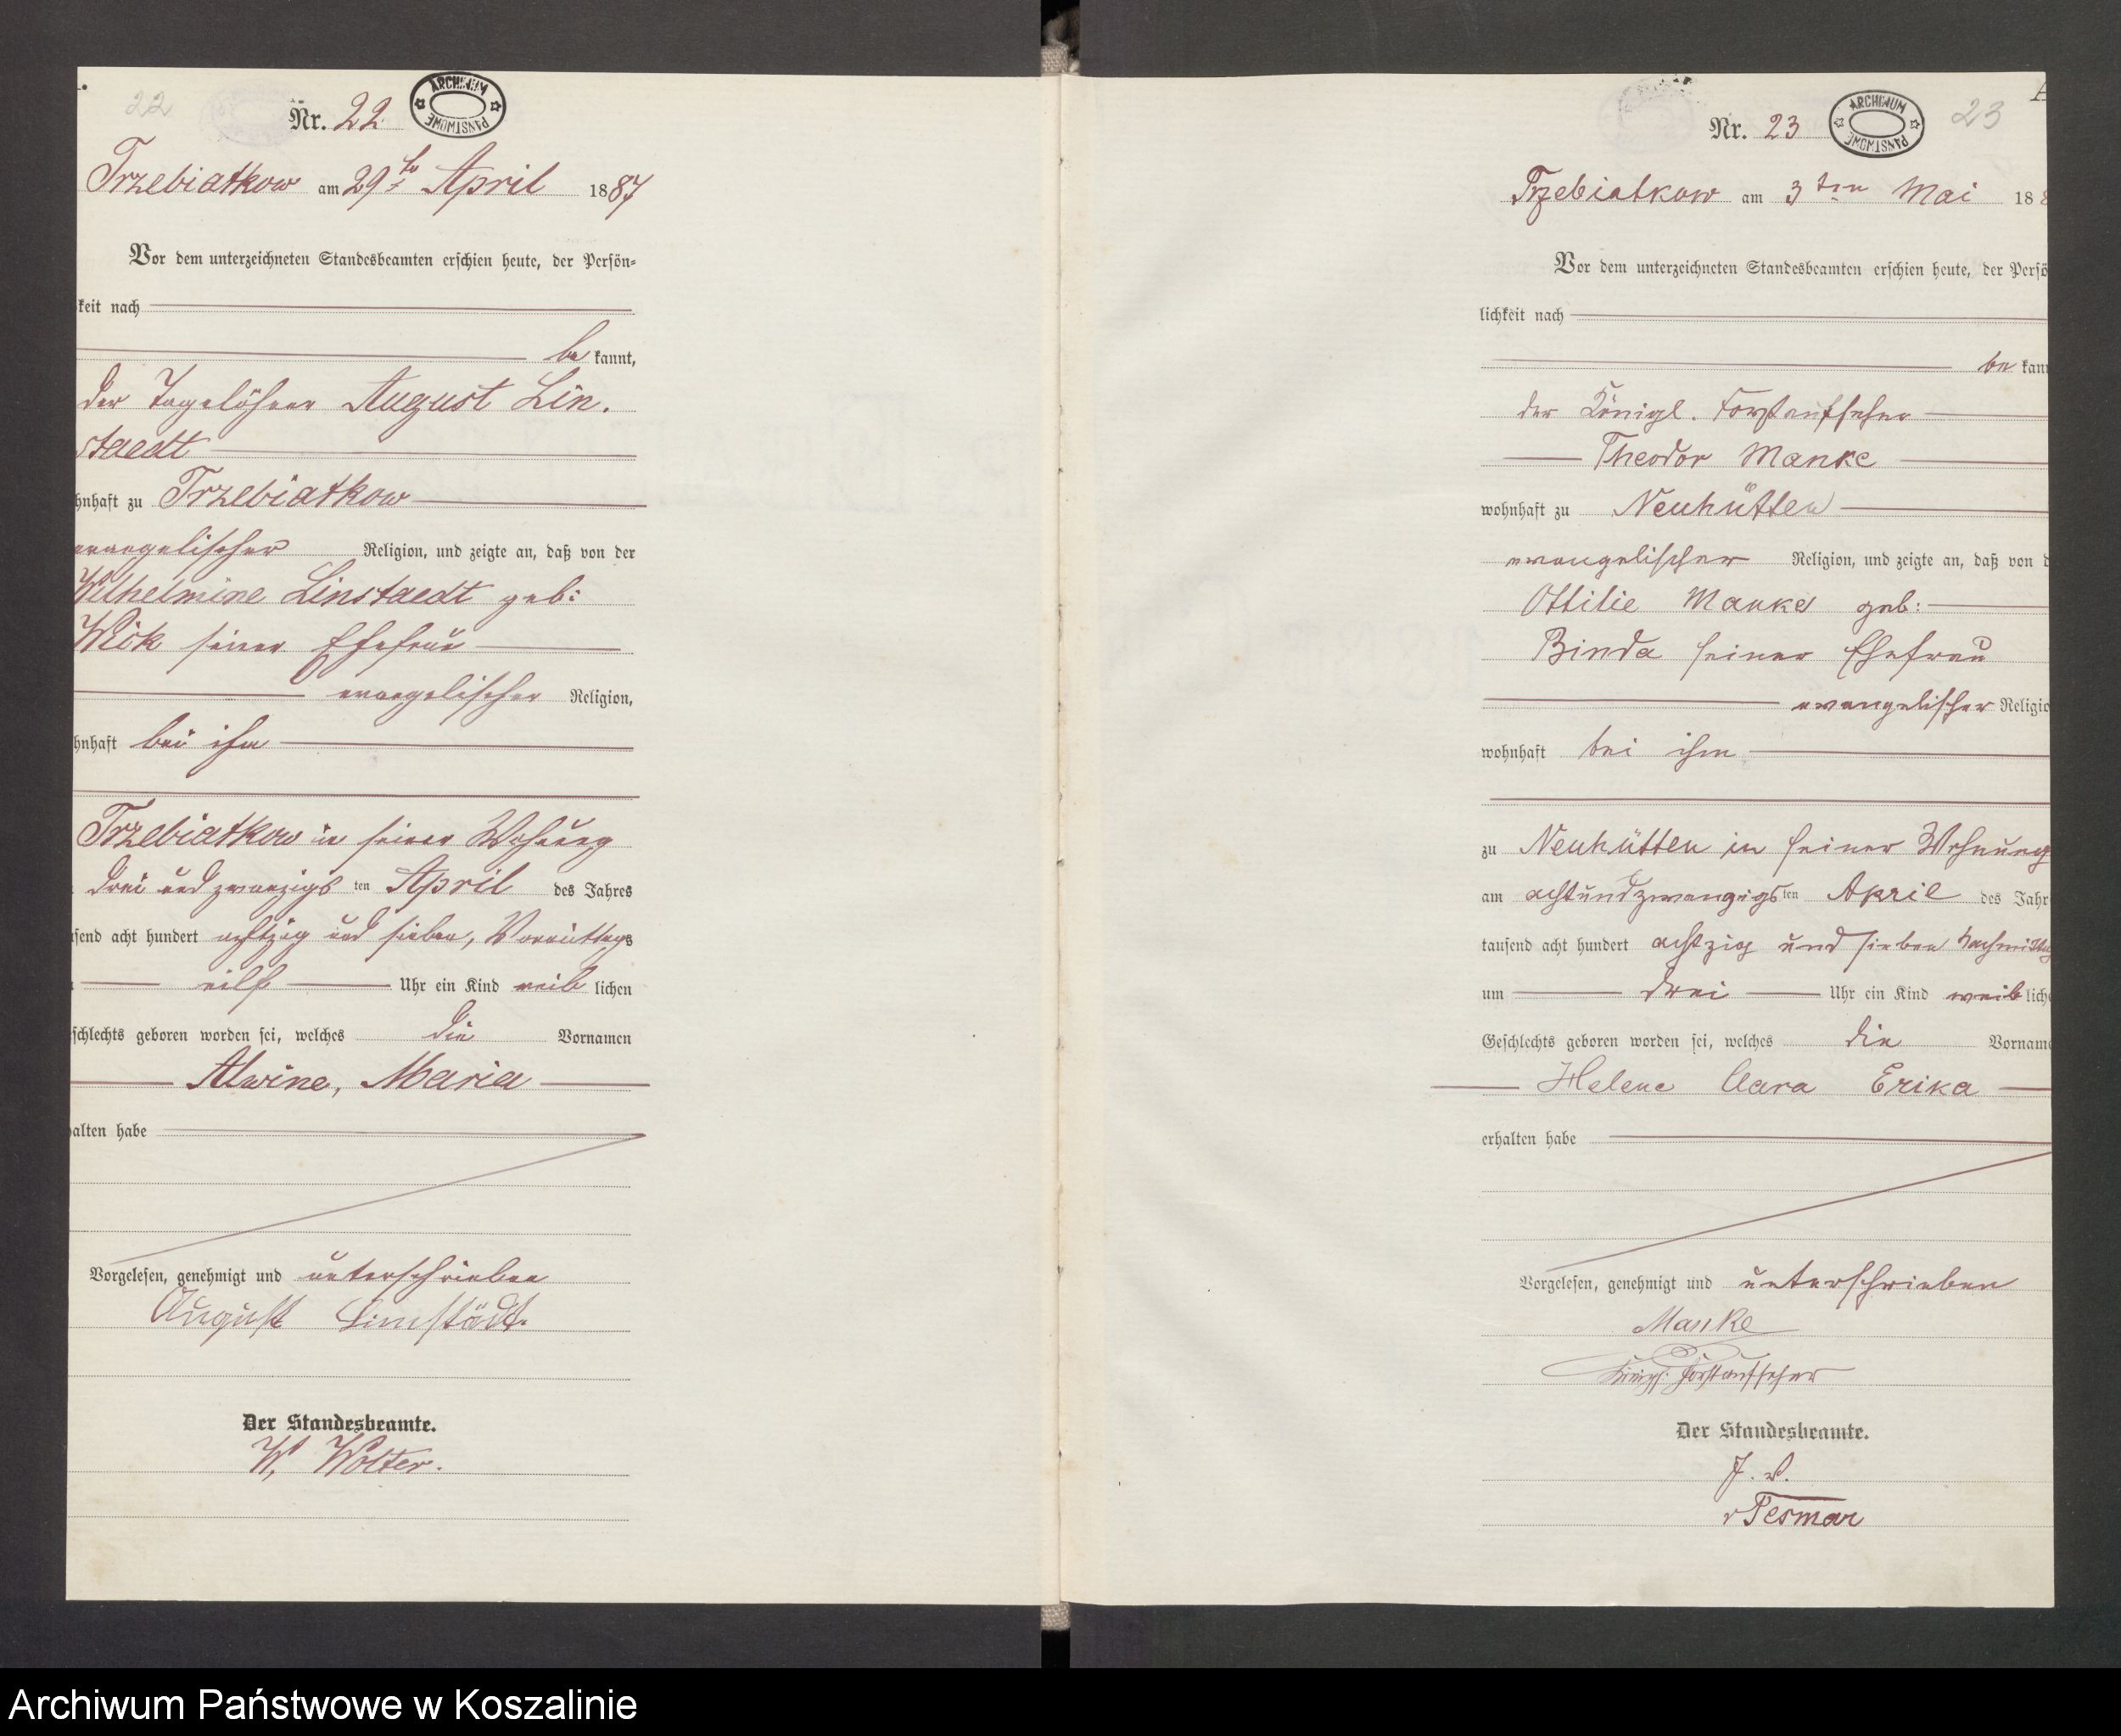 22
Nr. 22.
ARCHIWUM PAŃSTWOWE
Trzebiatkow am 29 ten April 1887
Vor dem unterzeichneten Standesbeamten erschien heute, der Persön-
keit nach
be kannt,
der Tagelöhner August Lin.
staedt
hnhaft zu Trzebiatkow
evangelischer Religion, und zeigte an, daß von der
Wilhelmine Linstaedt geb:
Wick seiner Ehefrau
evangelischer Religion,
hnhaft bei ihm
Trzebiatkow in seiner Wohnung
drei und zwanzigs ten April des Jahres
usend acht hundert achtzig und sieben, Vormittags
eilf Uhr ein Kind weib lichen
schlechts geboren worden sei, welches die Vornamen
Alwine, Maria
alten habe
Vorgelesen, genehmigt und unterschrieben
August Linstädt.
Der Standesbeamte.
W. Wolter.
Nr. 23
ARCHIWUM PAŃSTWOWE
23
Trzebiatkow am 3 ten Mai 188
Vor dem unterzeichneten Standesbeamten erschien heute, der Persö
lichkeit nach
be kan
der Königl. Forstaufseher
Theodor Manke
wohnhaft zu Neuhütten
evangelischer Religion, und zeigte an, daß von d
Ottilie Manke geb:
Binda seiner Ehefrau
evangelischer Religio
wohnhaft bei ihm
zu Neuhütten in seiner Wohnung
am achtundzwanzigs ten April des Jahr
tausend acht hundert achtzig und sieben Nachmittag
um drei Uhr ein Kind weib liche
Geschlechts geboren worden sei, welches die Vorname
Helene Clara Erika
erhalten habe
Vorgelesen, genehmigt und unterschrieben
Manke
Königl. Forstaufseher
Der Standesbeamte.
J. V.
v Tesmar
Archiwum Państwowe w Koszalinie